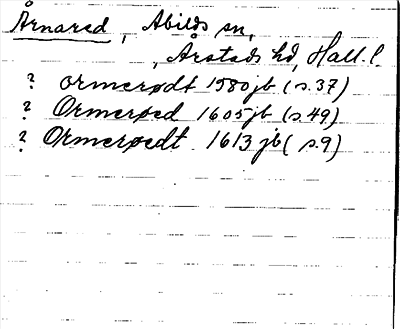 Årnared, Abilds sn,
, Årstads hd, Hall. l.
? ormerødt 1580 jb (s. 37)
? Ormerøed 1605 jb (s. 49)
? Ormerøedt 1613 jb (s. 9)